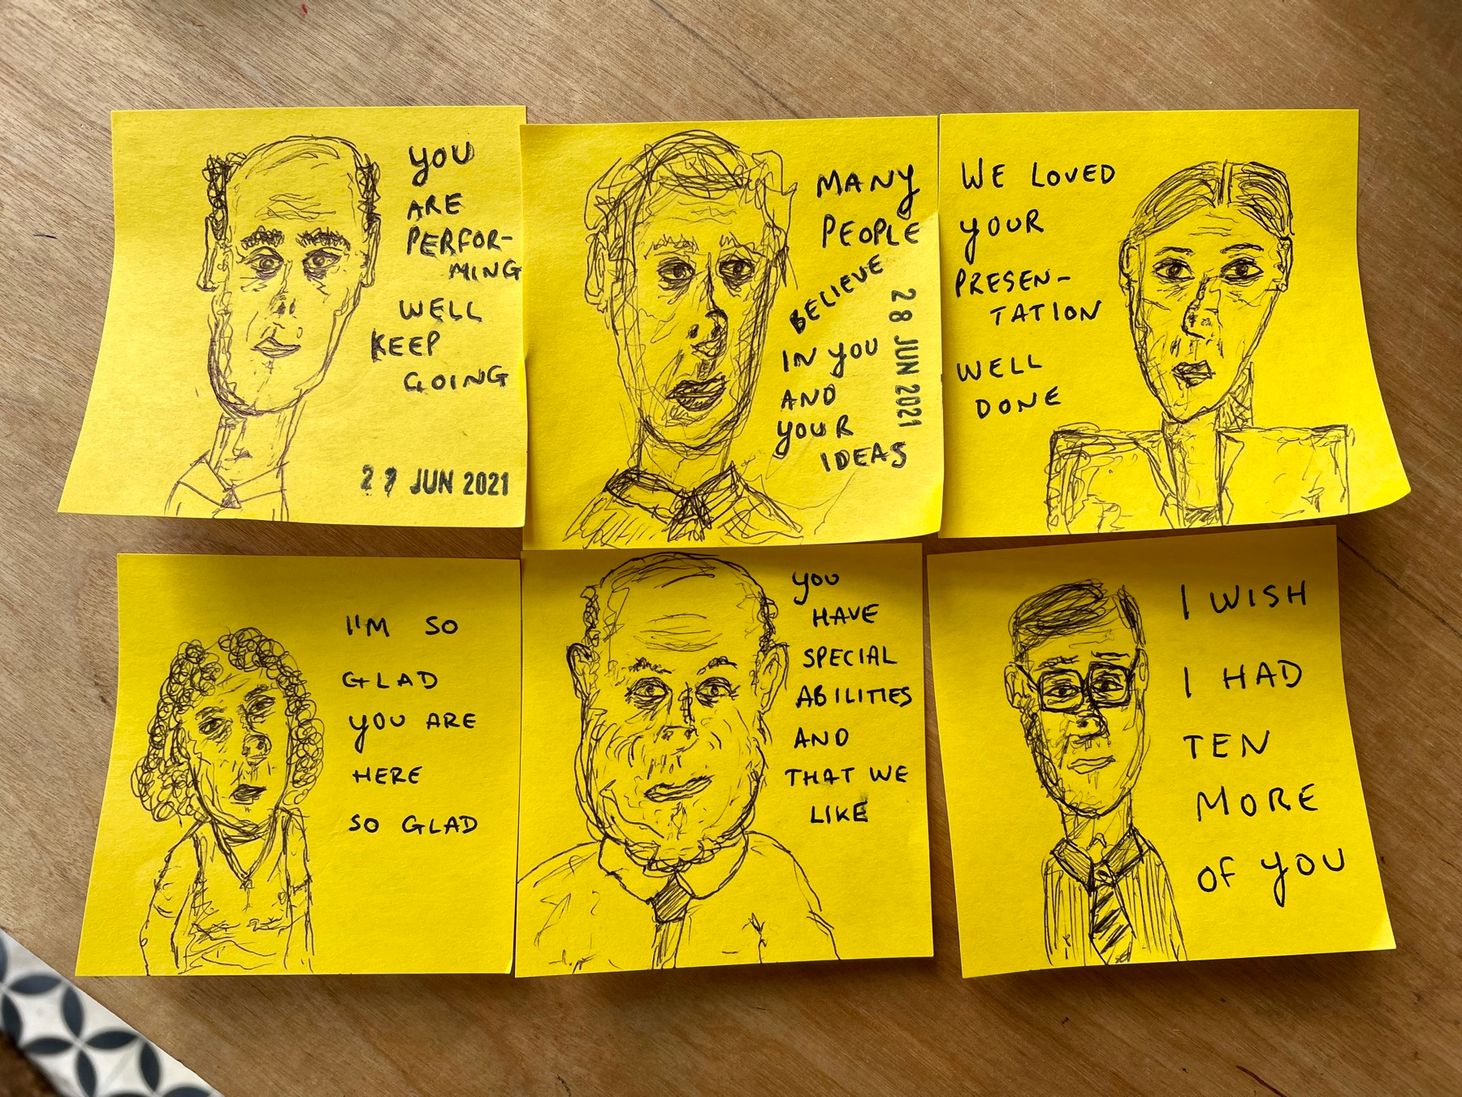 YOU
ARE
PERFOR-
MING
WELL
KEEP
GOING
27 JUN 2021
MANY
PEOPLE
BELIEVE
IN YOU
AND
YOUR
IDEAS
28 JUN 2021
WE LOVED
YOUR
PRESEN-
TATION
WELL
DONE
I'M SO
GLAD
YOU ARE
HERE
SO GLAD
YOU
HAVE
SPECIAL
ABILITIES
AND
THAT WE
LIKE
I WISH
I HAD
TEN
MORE
OF YOU